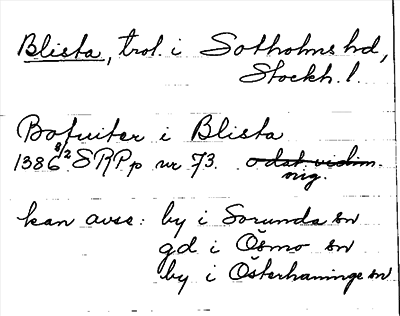 Blista, trol. i Sotholms hd,
Stockh. l.
Bofuiter i Blista
1386 8/2 SRPp nr 73. odat vidim.
nig.
kan avse: by i Sorunda sn
gd i Ösmo sn
by i Österhaninge sn